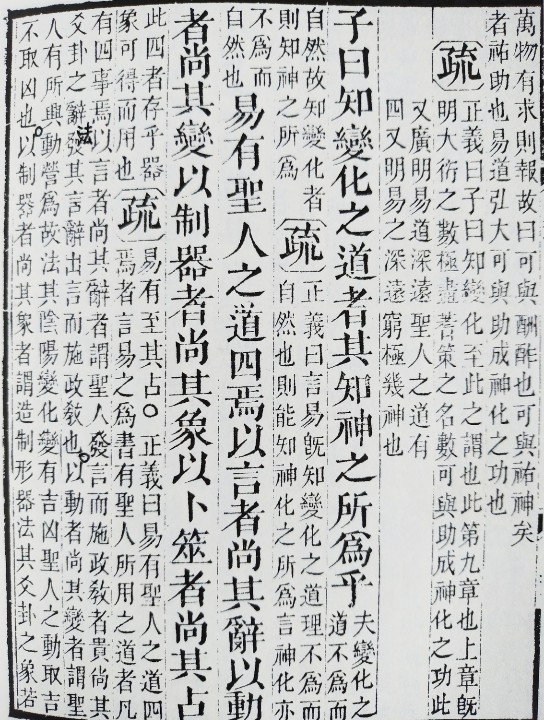 萬物有求則報故曰可與酬酢也可與祐神矣
者祐助也易道弘大可與助成神化之功也
疏
正義曰子曰知變化至此之謂也此第九章也上章旣
明大衍之數極盡蓍策之名數可與助成神化之功此
又廣明易道深遠聖人之道有
四又明易之深遠窮極幾神也
子曰知變化之道者其知神之所爲乎
夫變化之
道不爲而
自然故知變化者
則知神之所爲
疏
正義曰言易旣知變化之道理不爲而
自然也則能知神化之所爲言神化亦
不爲而
自然也
易有聖人之道四焉以言者尚其辭以動
者尚其變以制器者尚其象以卜筮者尚其占
此四者存乎器
象可得而用也
疏
易有至其占○正義曰易有聖人之道四
焉者言易之爲書有聖人所用之道者凡
有四事焉以言者尚其辭者謂聖人發言而施政敎者貴尚其
爻卦之辭發其言辭出言而施政敎也以動者尚其變者謂聖
法
人有所興動營爲故法其陰陽變化變有吉凶聖人之動取吉
不取凶也以制器者尚其象者謂造制形器法其爻卦之象若